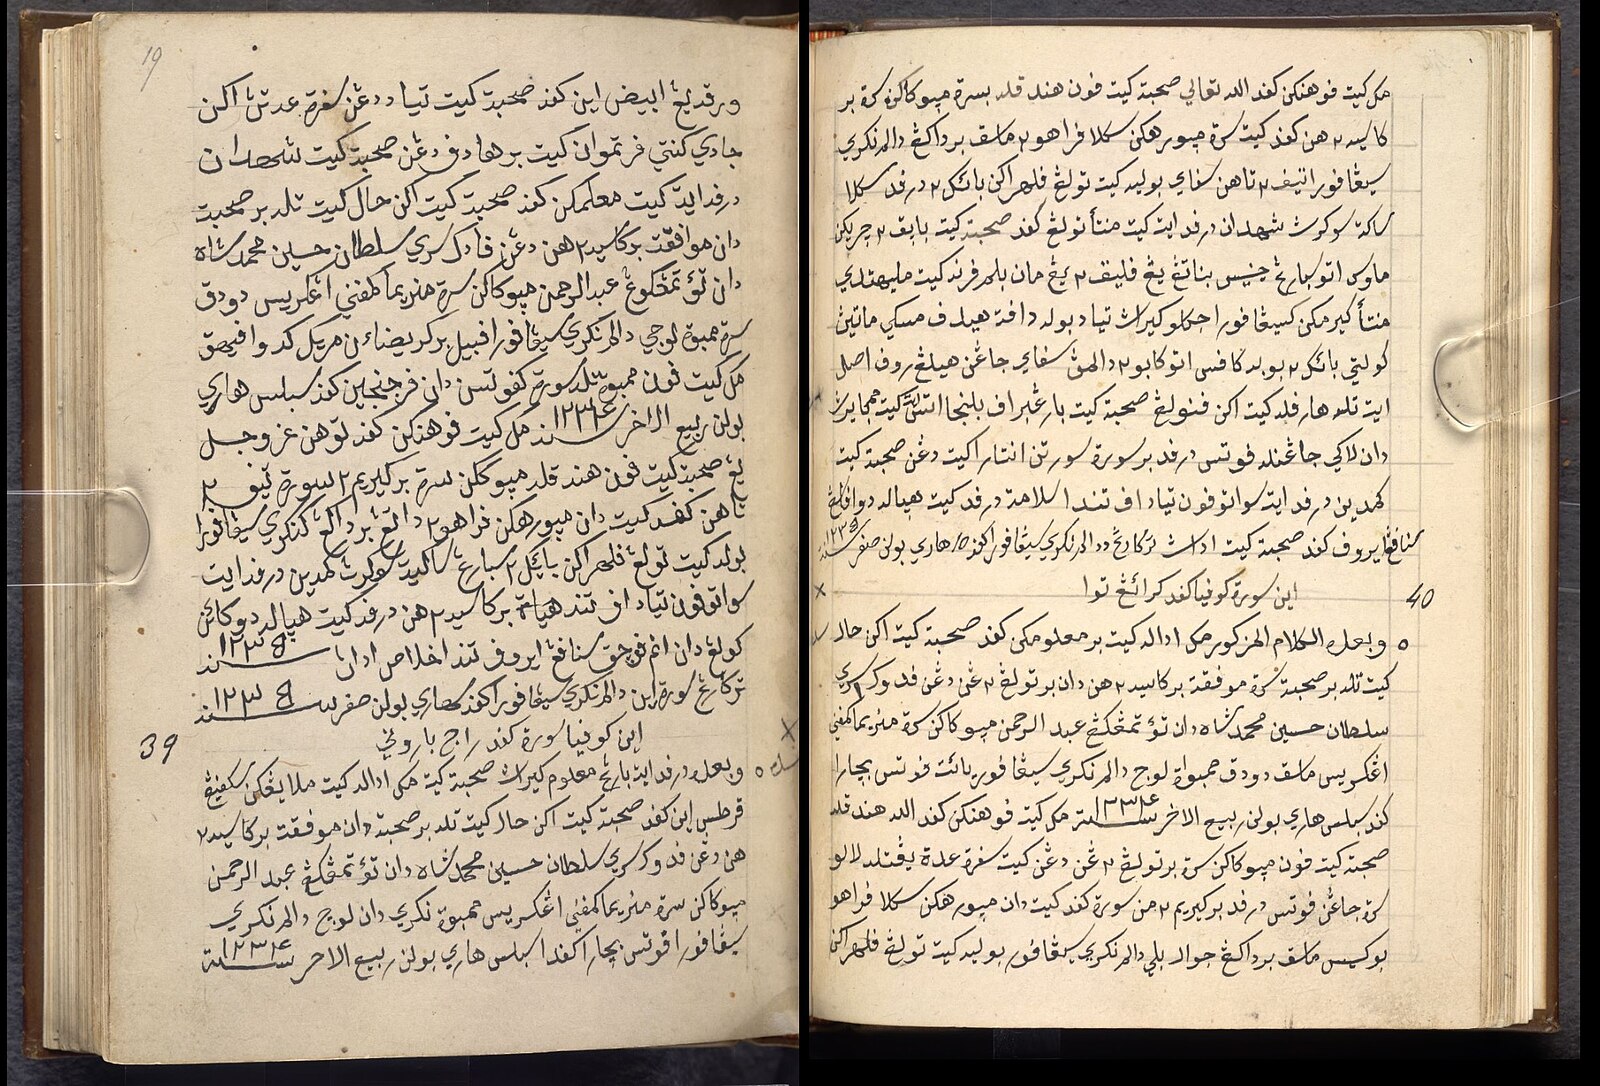 19
ورقة يڠ ابيض اين كفد صحبة كيت تياد دڠن سفرة عدتڽ اكن
جادي كنتي فرتموان كيت برهادف دڠن صحبة كيت شهدان
درفد ايت كيت معلمكن كفد صحبة كيت اكن حال كيت تله برصحبة
دان موافقت بركاسيه ٢هن دڠن فادك سري سلطان حسين محمد شاه
دان تؤ تمڠكوڠ عبدالرحمن مپوكاكن سرة منريما كمفني اڠكريس دودق
سرة ممبوة لوجي دالم نكري سيڠافورا
مك كيت فون ممبوة تله سورة كفوتسن دان فرجنجين كفد سبلس هاري
بولن ربيع الاخر سنة ١٢٣٤ مك كيت فوهنكن كفد توهن عز وجل
يڠ صحبة كيت فون هندقله مپوكاكن سرة بركيريم ٢ سورة تيف ٢
تاهن كفد كيت دان مپورهكن فراهو ٢ داتڠ برداڠڠ كنكري سيڠافورا
بوله كيت تولڠ فلهراكن بائك ٢ سبارڠ ساكيت سوكرڽ كمدين درفد ايت
سواتوفون تياد اف تند حياة بركاسيه ٢هن درفد كيت هياله دوكاين
كولڠ دان انم فوچق سنافڠ ايروف تند اخلاص اداڽ سنة ١٢٣٥
ترقارڠ سورة اين دالم نكري سيڠافورا كفد هاري بولن صفر سنة ١٢٣٥
39 اين كوفيا سورة كفد راج باروڠي
وبعده درفد ايت بارڠ معلوم كيراڽ صحبة كيت مك اداله كيت ملايڠكن سكفيڠ
قرطس اين كفد صحبة كيت اكن حال كيت تله برصحبة دان موفقت بركاسيه ٢
هن دڠن فدوك سري سلطان حسين محمد شاه دان تؤ تمڠكڠ عبد الرحمن
مپوكاكن سرة منريما كمفني اڠكريس ممبوة نكري دان لوج دالم نكري
سيڠافورا فوتس بچارا كفدا سبلس هاري بولن ربيع الاخر سنة ١٢٣٤
مك كيت فوهنكن كفد الله تعالي صحبة كيت فون هندقله بسرة مپوكاكن سرة بر
كاسيه ٢هن كفد كيت سرة مپورهكن سكلا فراهو ٢ ماسق برداڬڠ دالم نكري
سيڠافورا تيف ٢ تاهن سفاي بوليه كيت تولڠ فلهراكن بائك ٢ درفد سكلا
ساكة سوكرڽ شهدان درفد ايت كيت منتأ تولڠ كفد صحبة كيت بايق ٢ چريكن
ماوس اتو بارڠ جنيس بناتڠ يڠ فليق ٢ يڠ مان بلم فرنه كيت مليهتدي
منتأ كيرمكن كسيڠافورا جكلو كيراڽ تياد بوله دافة هيدف مسكي ماتيڽ
كوليتي بائك ٢ بوبه كافس اتو كابو ٢ دالمڽ سفاي جاڠن هيلڠ روف اصل
ايت تله هارفله كيت اكن فنولڠ صحبة كيت بارڠبراف بلنجا اتسله كيت ممبايرڽ
دان لاڬي جاڠنله فوتس درفد برسورة سورتن انتارا كيت دڠن صحبة كيت
كمدين درفد ايت سواتوفون تياد اف تندا سلامة درفد كيت هياله دوا فوچق
سنافڠ ايروف كفد صحبة كيت اداڽ ترقارڠ ددالم نكري سيڠافورا كفد هاري بولن صفر سنة ١٢٣٥
40 اين سورة كوفيا كفد كرائڠ توا
وبعده الكلام المذكور مك اداله كيت برمعلومكن كفد صحبة كيت اكن حال
كيت تله برصحبة سرة موفقة بركاسيه ٢هن دان برتولڠ ٢ڠن دڠن فدوك سري
سلطان حسين محمد شاه دان تؤ تمڠكڠ عبد الرحمن مپوكاكن سرة منريما كمفني
اڠكريس ماسق دودق ممبواة لوج دالم نكري سيڠافورا يائت فوتس بچارا
كفد سبلس هاري بولن ربيع الاخر سنة ١٢٣٤ مك كيت فوهنكن كفد الله هندقله
صحبة كيت فون مپوكاكن سرة برتولڠ ٢ڠن دڠن كيت سفرة عدة يڠتله لالو
سرة جاڠن فوتس درفد بركيريم ٢من سورة كفد كيت دان مپورهكن سكلا فراهو
بوكيس ماسق برداڬڠ جوال بلي دالم نكري سيڠافورا بوليه كيت تولڠ فلهراكن